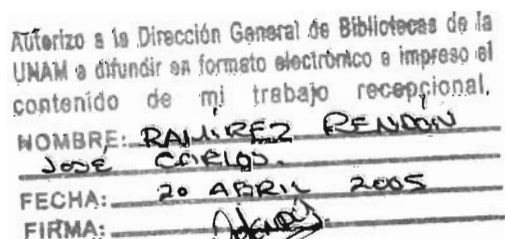 Autorizo a la Dirección General de Bibliotecas de la
UNAM a difundir en formato electrónico e impreso el
contenido de mi trabajo recepcional.
NOMBRE: RAMÍREZ RENDÓN
JOSÉ CARLOS.
FECHA: 20 ABRIL 2005
FIRMA: